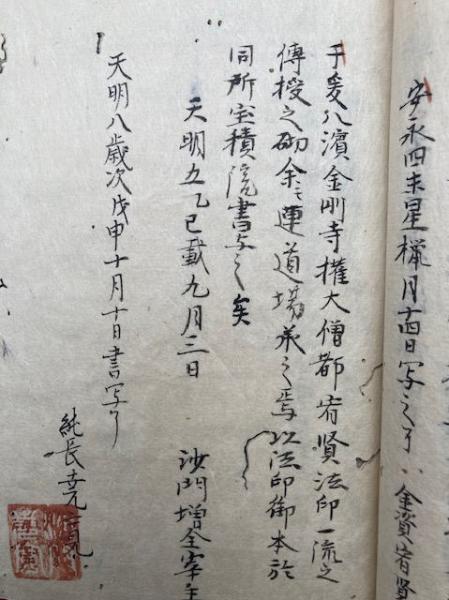 安永四未星臘月十四日写之了 金資宥賢
于爰八濱金剛寺權大僧都宥賢法印一流之
傳授之砌余モ連道場承之焉以法印御本於
同所宝積院書写之矣
天明五乙巳載九月三日 沙門増全
天明八歳次戊申十月十日書写了
純長